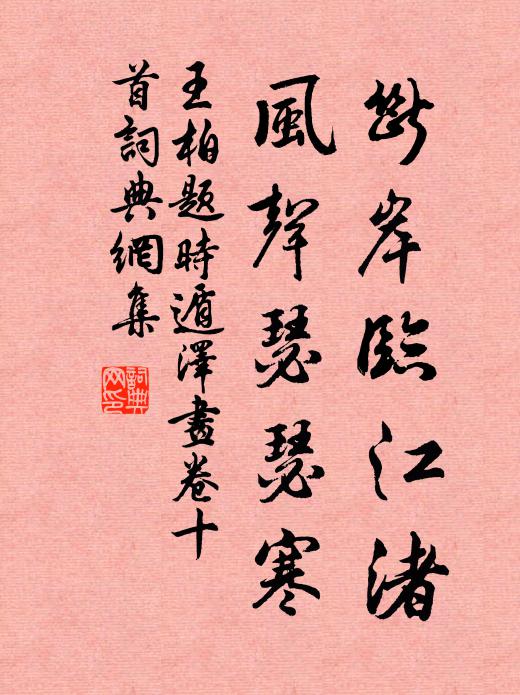 斷岸臨江渚
風聲瑟瑟寒
王柏題時遁澤畫卷十
首詞典網集
詞典
网印